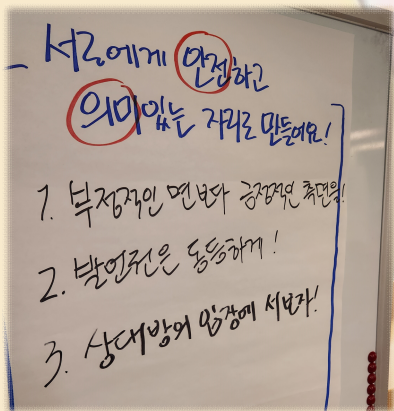 서로에게 안전하고
의미있는 자리로 만들어요!
1. 부정적인 면보다 긍정적인 측면을!
2. 발언권은 동등하게!
3. 상대방의 입장에 서보자!